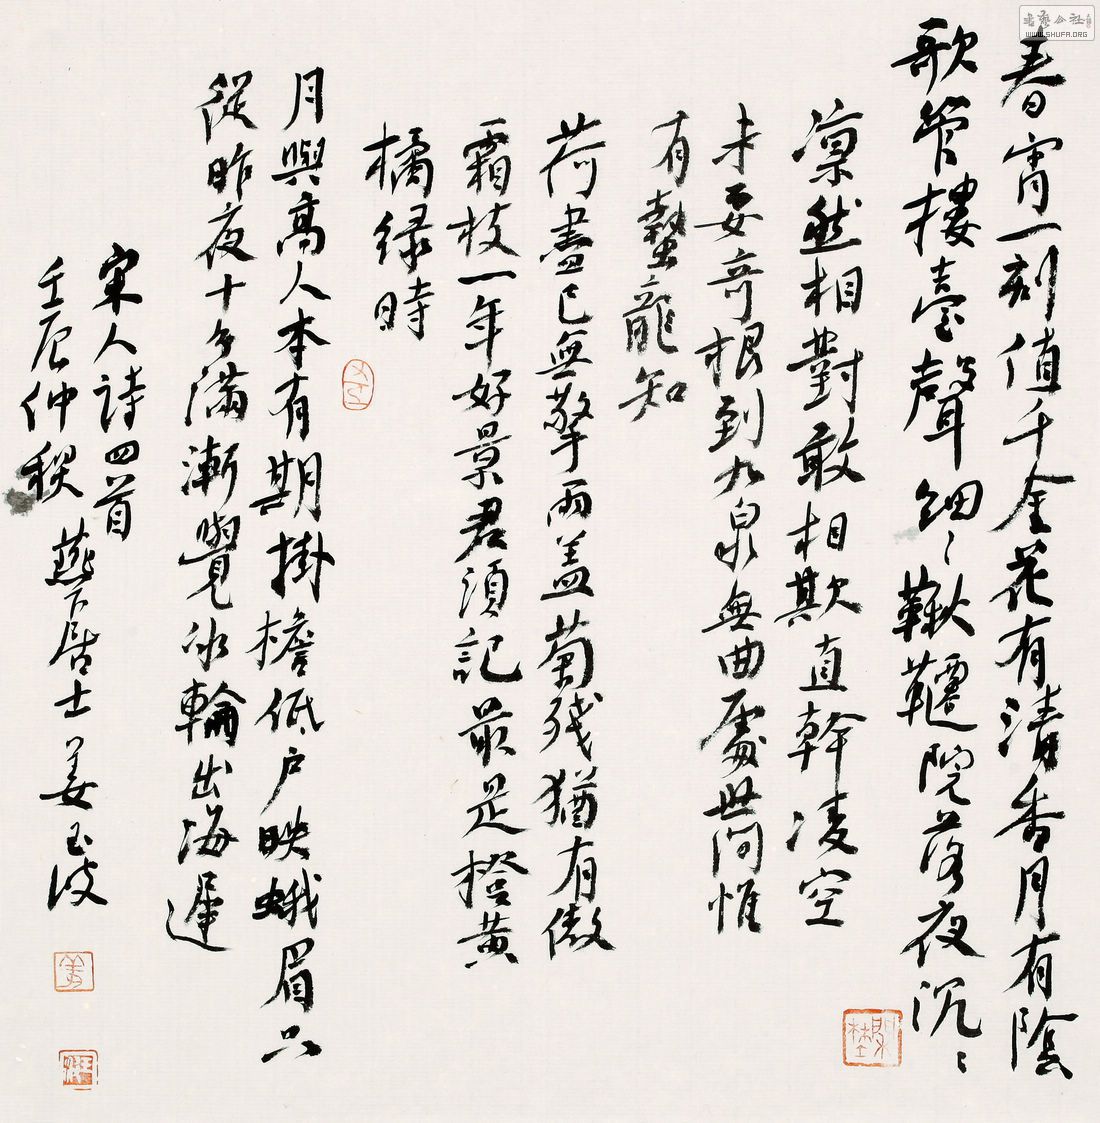 春宵一刻值千金花有清香月有陰
歌管樓臺聲細〻鞦韆院落夜沉〻
凜然相對敢相欺直幹凌空
未要奇根到九泉無曲處世間惟
有蟄龍知
荷盡已無擎雨盖菊殘猶有傲
霜枝一年好景君須記最是橙黄
橘緑時
月與高人本有期掛檐低户映蛾眉只
從昨夜十分滿漸覺冰輪出海遲
宋人詩四首
壬辰仲 燕下居士姜玉波
书艺公社
WWW.SHUFA.ORG